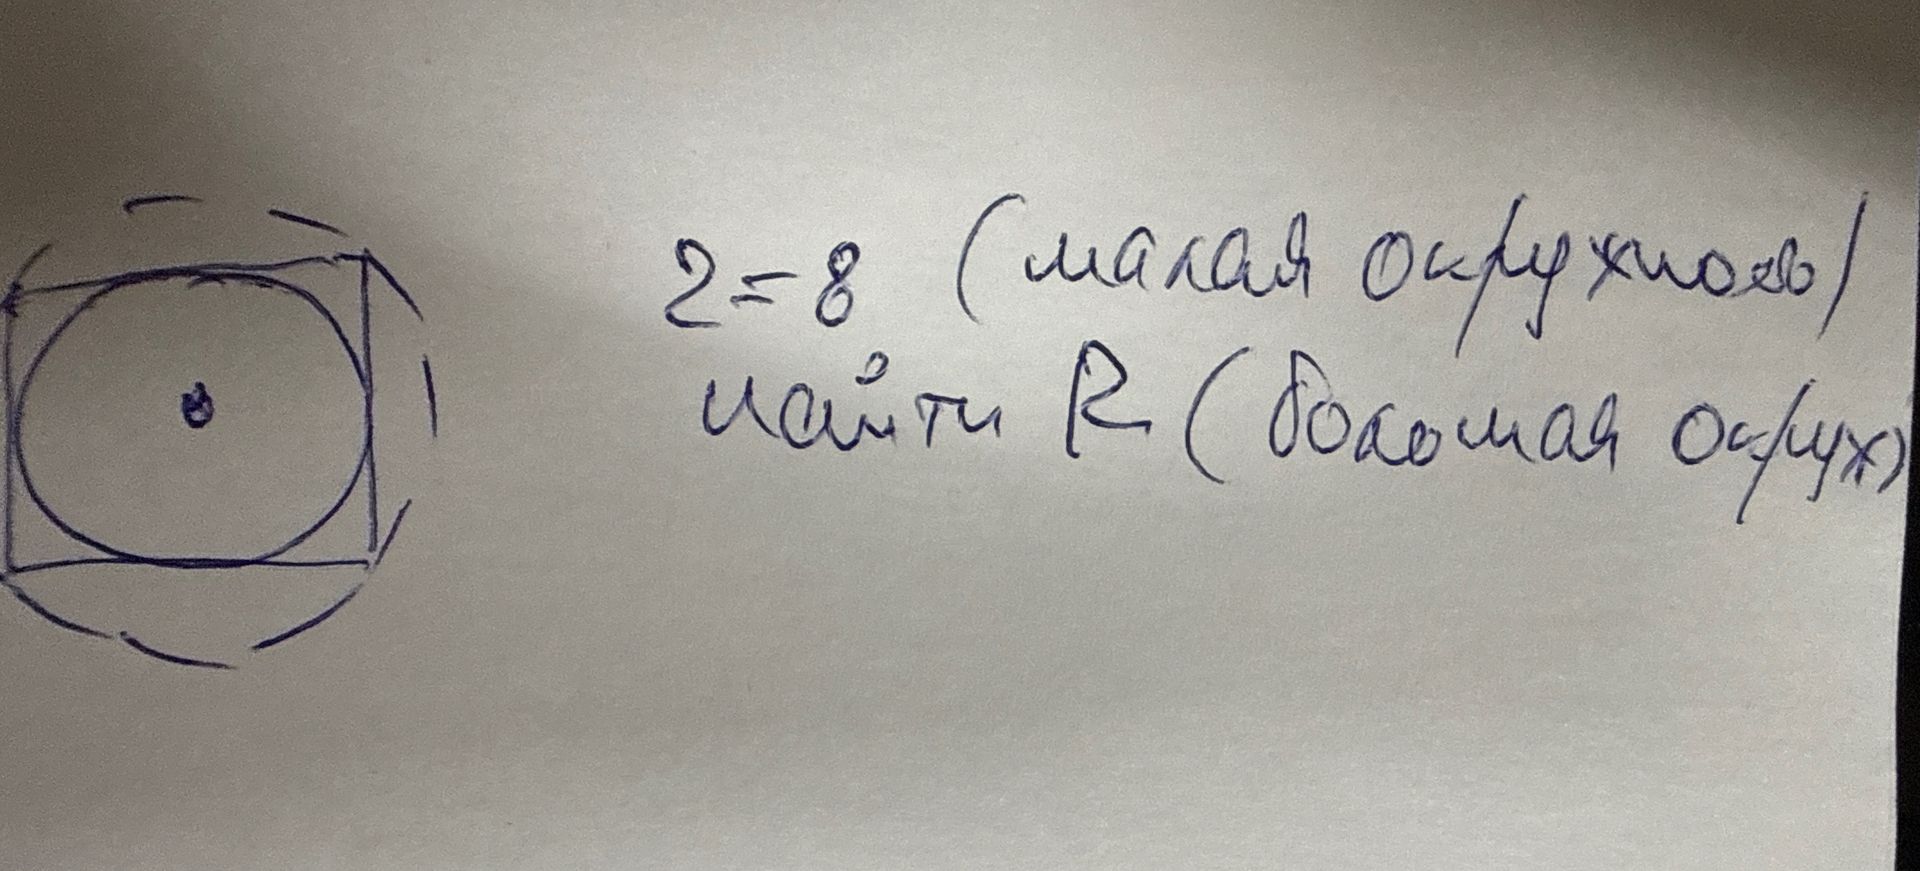 r = 8 (малая окружность)
найти R (большая окруж)